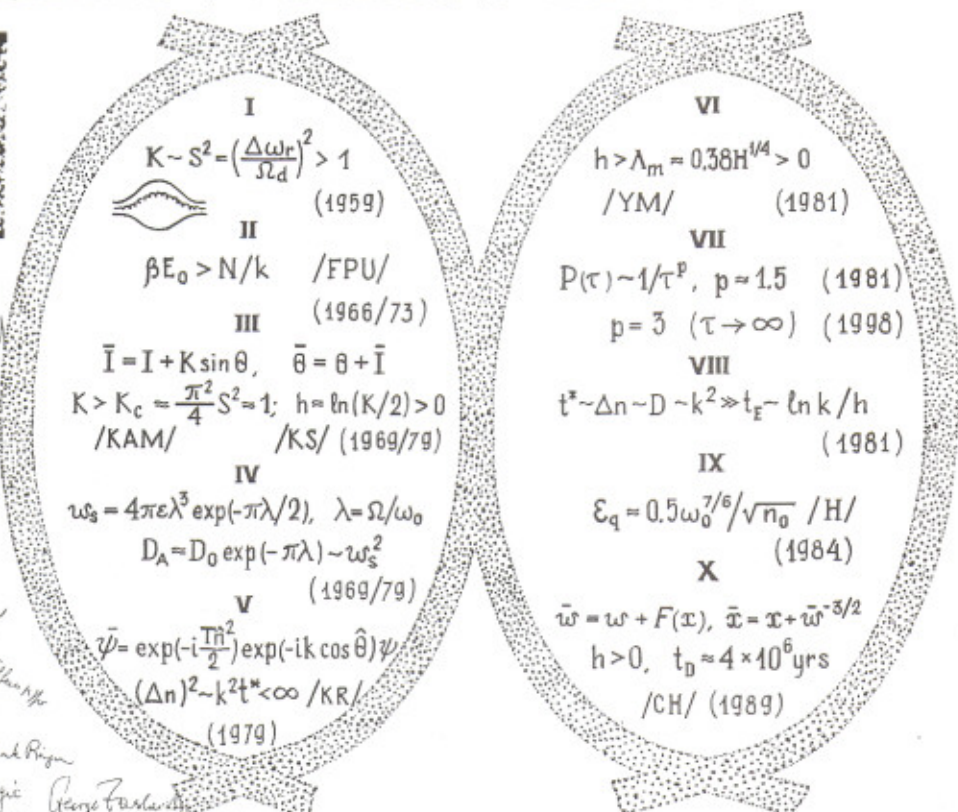 I
K ~ S² = (Δω_r/Ω_d)² > 1
(1959)
II
βE₀ > N/k /FPU/
(1966/73)
III
Ī = I + K sin θ, θ̄ = θ + Ī
K > K_c ≈ π²/4 S² ≈ 1; h ≈ ln(K/2) > 0
/KAM/ /KS/ (1969/79)
IV
w_s = 4πελ³ exp(-πλ/2), λ = Ω/ω₀
D_A ≈ D₀ exp(-πλ) ~ w_s²
(1969/79)
V
ψ̄ = exp(-i Tn̂²/2) exp(-ik cos θ̂)ψ
(Δn)² ~ k²t* < ∞ /KR/
(1979)
VI
h > Λ_m ≈ 0.38H^{1/4} > 0
/YM/ (1981)
VII
P(τ) ~ 1/τ^p, p ≈ 1.5 (1981)
p = 3 (τ → ∞) (1998)
VIII
t* ~ Δn ~ D ~ k² ≫ t_E ~ ln k/h
(1981)
IX
Ɛ_q ≈ 0.5ω₀^{7/6}/√n₀ /H/
(1984)
X
w̄ = w + F(x), x̄ = x + w̄^{-3/2}
h > 0, t_D ≈ 4 × 10⁶ yrs
/CH/ (1989)
George